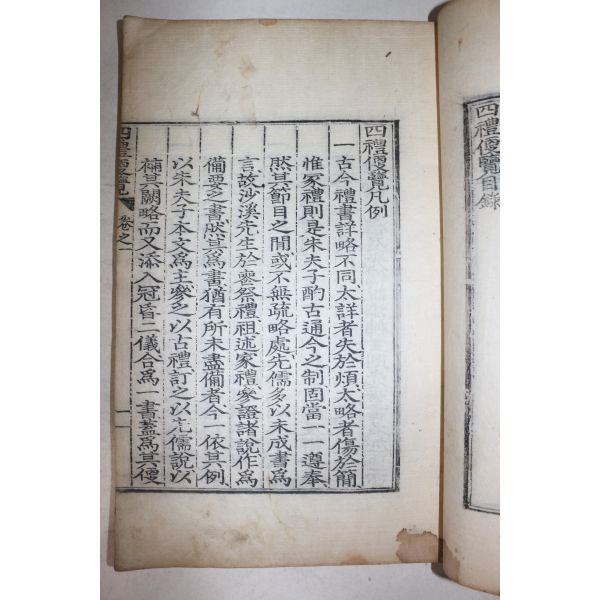 四禮便覽目錄
四禮便覽凡例
一古今禮書詳略不同太詳者失於煩太略者傷於簡
惟家禮則是朱夫子酌古通今之制固當一一遵奉
然其節目之間或不無疏略處先儒多以未成書爲
言故沙溪先生於喪祭禮祖述家禮參證諸說作爲
備要之書然其爲書猶有所未盡備者今一依其例
以朱夫子本文爲主參之以古禮訂之以先儒說以
補其闕略而又添入冠昏二儀合爲一書蓋爲其便
四禮便覽 卷之一 一